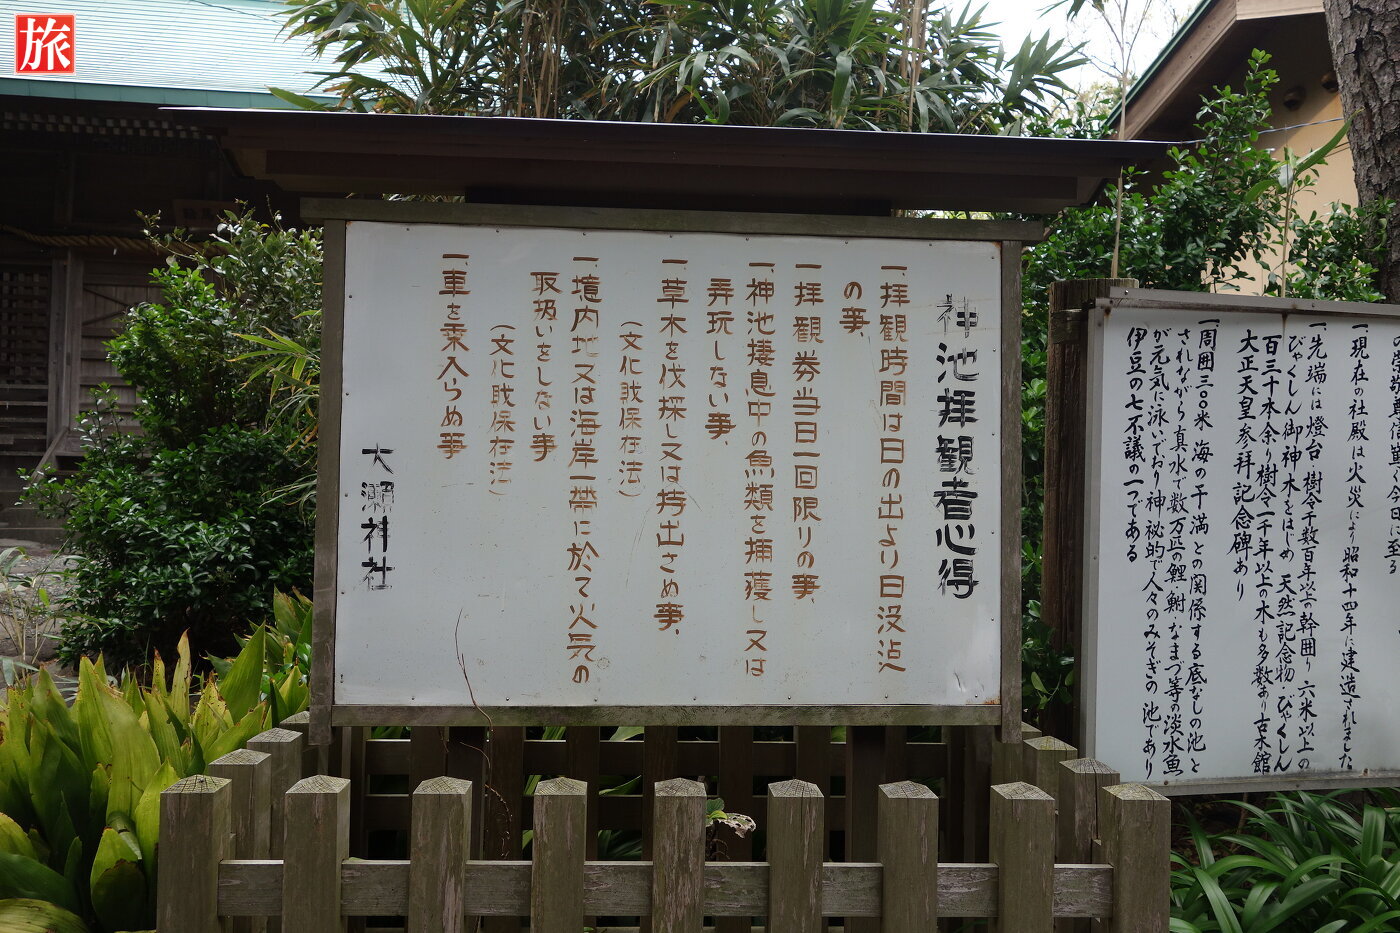 旅
神池拝観者心得
一、拝観時間は日の出より日没迠
の事、
一、拝観券当日一回限りの事、
一、神池棲息中の魚類を捕獲し又は
弄玩しない事、
一、草木を伐採し又は持出さぬ事、
(文化財保存法)
一、境内地又は海岸一帯に於て火気の
取扱いをしない事
(文化財保存法)
一、車を乗入らぬ事
大瀬神社
一、現在の社殿は火災により昭和十四年に建造されました
一、先端には燈台 樹令千数百年以上の幹囲り六米以上の
びゃくしん御神木をはじめ 天然記念物・びゃくしん
百三十本余り樹令一千年以上の木も多数あり古木館
大正天皇参拝記念碑あり
一、周囲三〇〇米 海の干満との関係する底なしの池と
されながら真水で数万匹の鯉 鮒 なまづ等の淡水魚
が元気に泳いでおり神秘的で人々のみそぎの池であり
伊豆の七不議の一つである